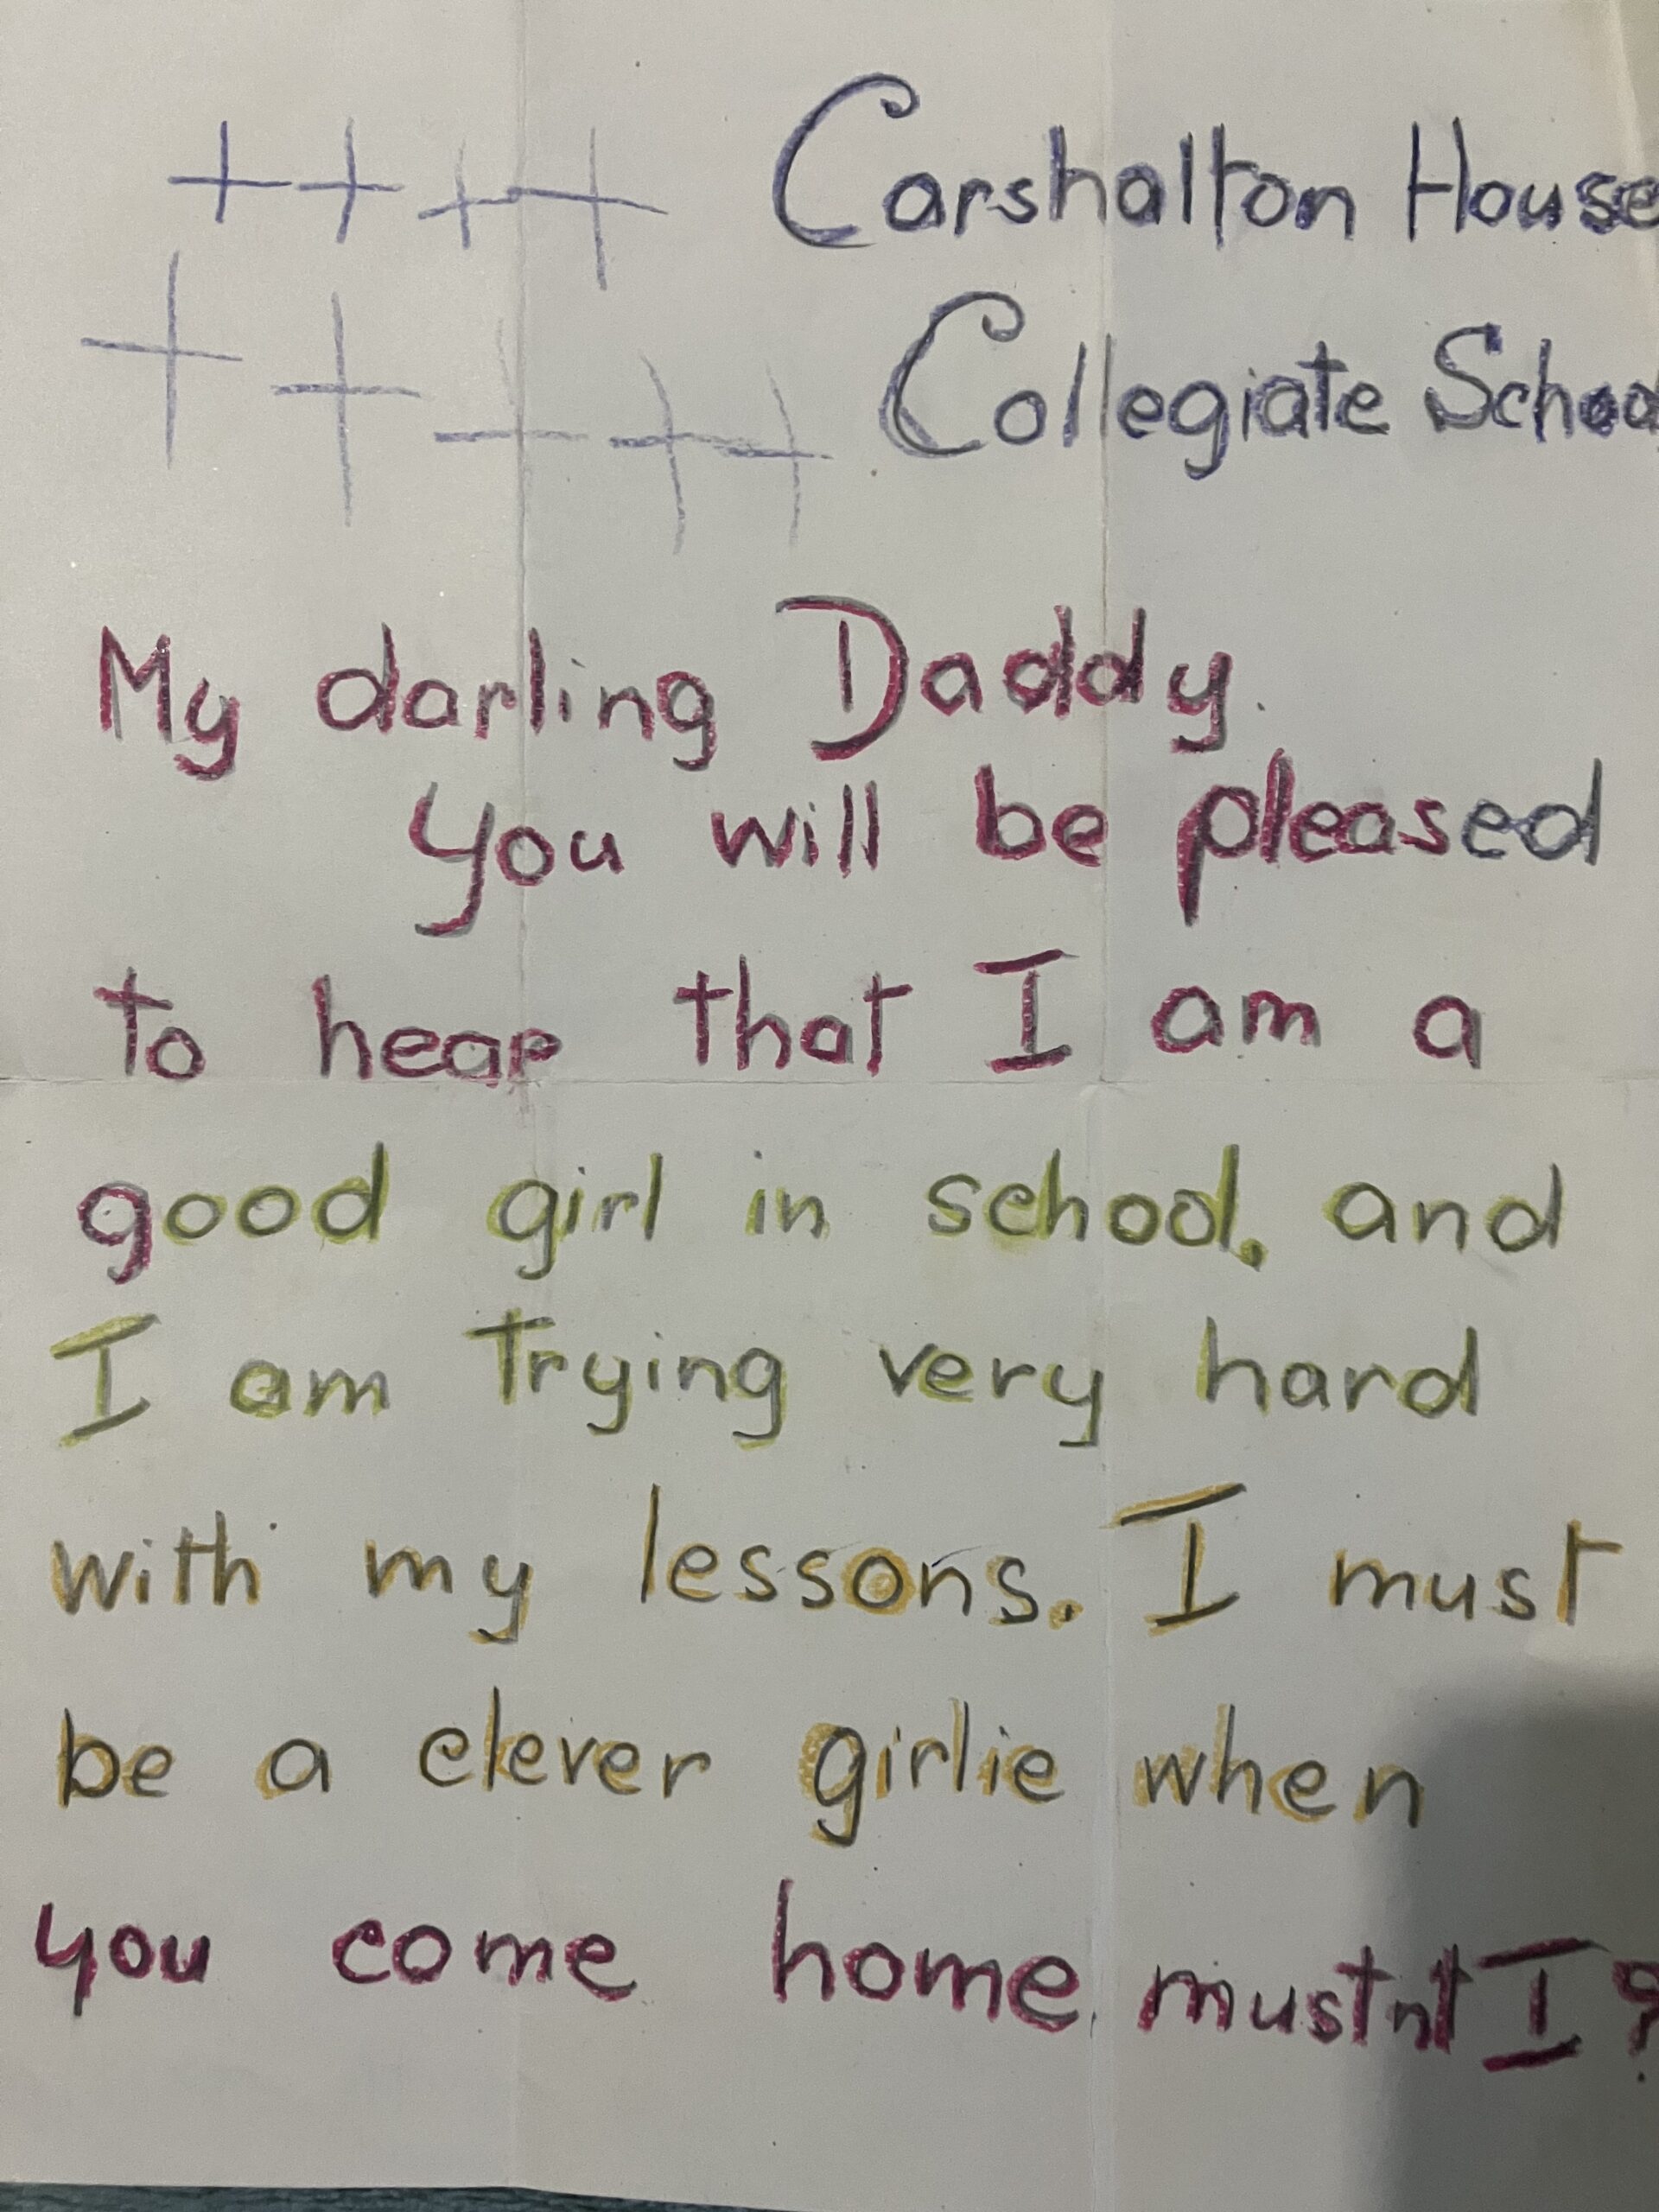 ++++ Carshalton House
+++++ Collegiate School
My darling Daddy.
You will be pleased
to hear that I am a
good girl in school, and
I am trying very hard
with my lessons. I must
be a clever girlie when
you come home, mustnt I?